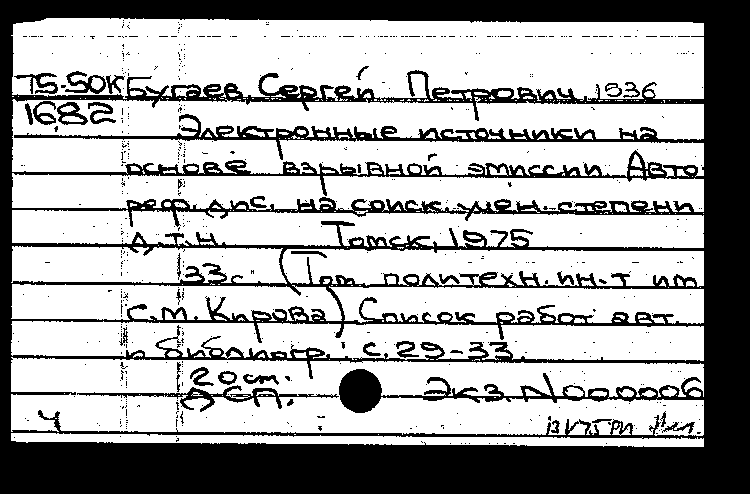 75-50К Бугаев, Сергей Петрович, 1936
1682
Электронные источники на
основе взрывной эмиссии. Авто-
реф. дис. на соиск. учен. степени
д.т.н. Томск, 1975
33с. (Том. политехн. ин-т им
С.М. Кирова) Список работ авт.
и библиогр.: с. 29-33.
20см.
ДСП. Экз. N000006
Ч